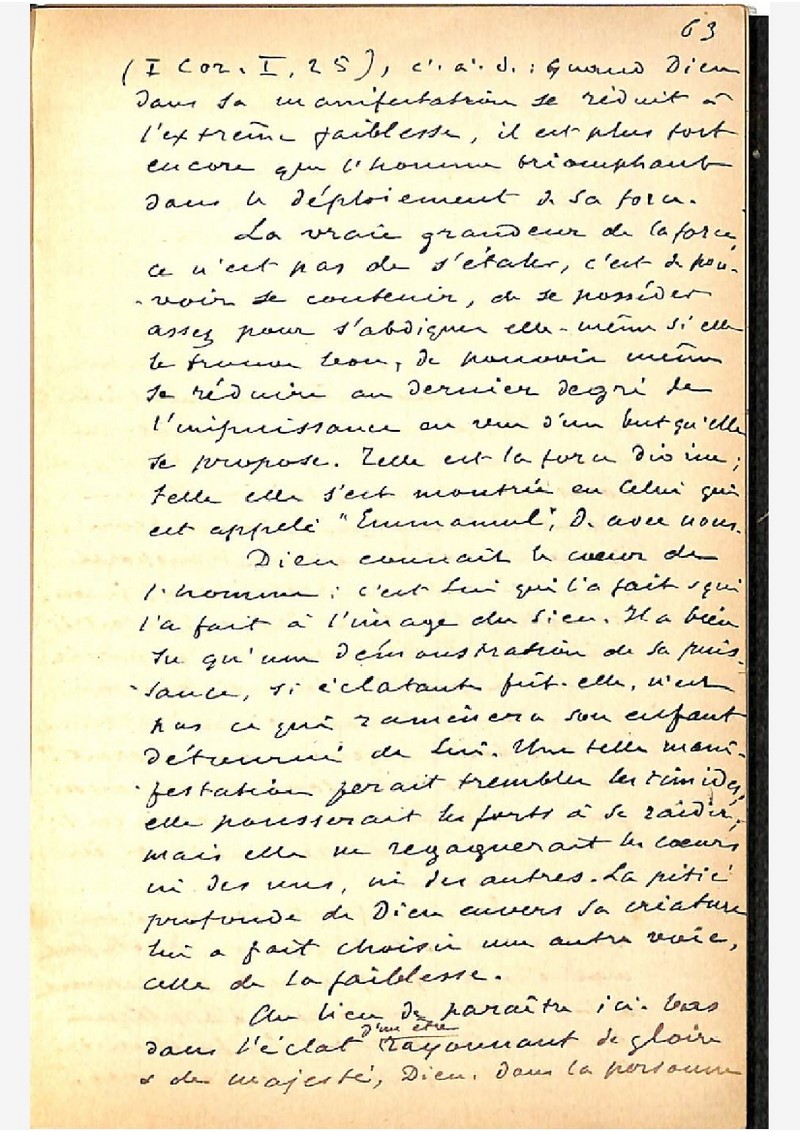 63
(I Cor. I, 25), c'. à'. d. : Quand Dieu
dans sa manifestation se réduit à
l'extrême faiblesse, il est plus fort
encore que l'homme triomphant
dans le déploiement de sa force.
La vraie grandeur de la force
ce n'est pas de s'étaler, c'est de pou-
-voir se contenir, de se posséder
assez pour s'abdiquer elle-même si elle
le trouve bon, de pouvoir même
se réduire au dernier degré de
l'impuissance en vue d'un but qu'elle
se propose. Telle est la force divine ;
telle elle s'est montrée en Celui qui
est appelé "Emmanuel", D. avec nous.
Dieu connaît le cœur de
l'homme ; c'est Lui qui l'a fait & qui
l'a fait à l'image du Sien. Il a bien
su qu'une démonstration de sa puis-
-sance, si éclatante fût-elle, n'est
pas ce qui ramènera son enfant
détourné de Lui. Une telle mani-
-festation ferait trembler les timides,
elle pousserait les forts à se raidir ;
mais elle ne regagnerait les cœurs
ni des uns, ni des autres. La pitié
profonde de Dieu envers sa créature
lui a fait choisir une autre voie,
celle de la faiblesse.
Au lieu de paraître ici-bas
dans l'éclat d'un être rayonnant de gloire
& de majesté, Dieu, dans la personne